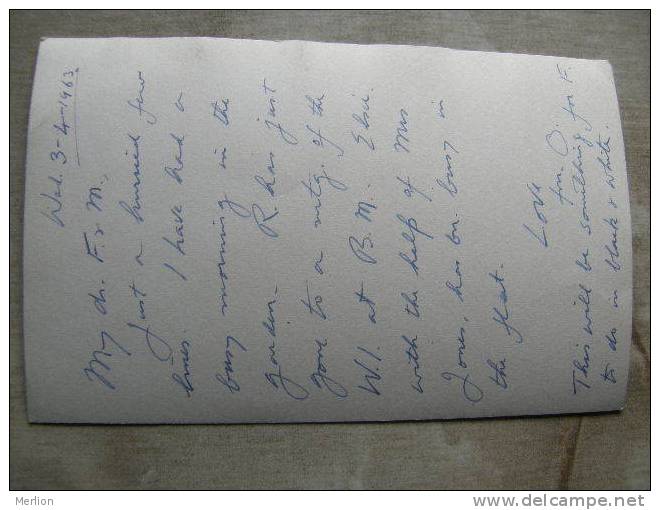 Wed. 3-4-1963.
My dr. F. & M.,
Just a hurried few
lines. I have had a
busy morning in the
garden. R has just
gone to a mtg. of the
W.I. at B.M. Elsie
with the help of Mrs
Jones, has bn. busy in
the flat.
Love
fr. O.
This will be something for F.
to do in black & white.
Merlion
www.delcampe.net